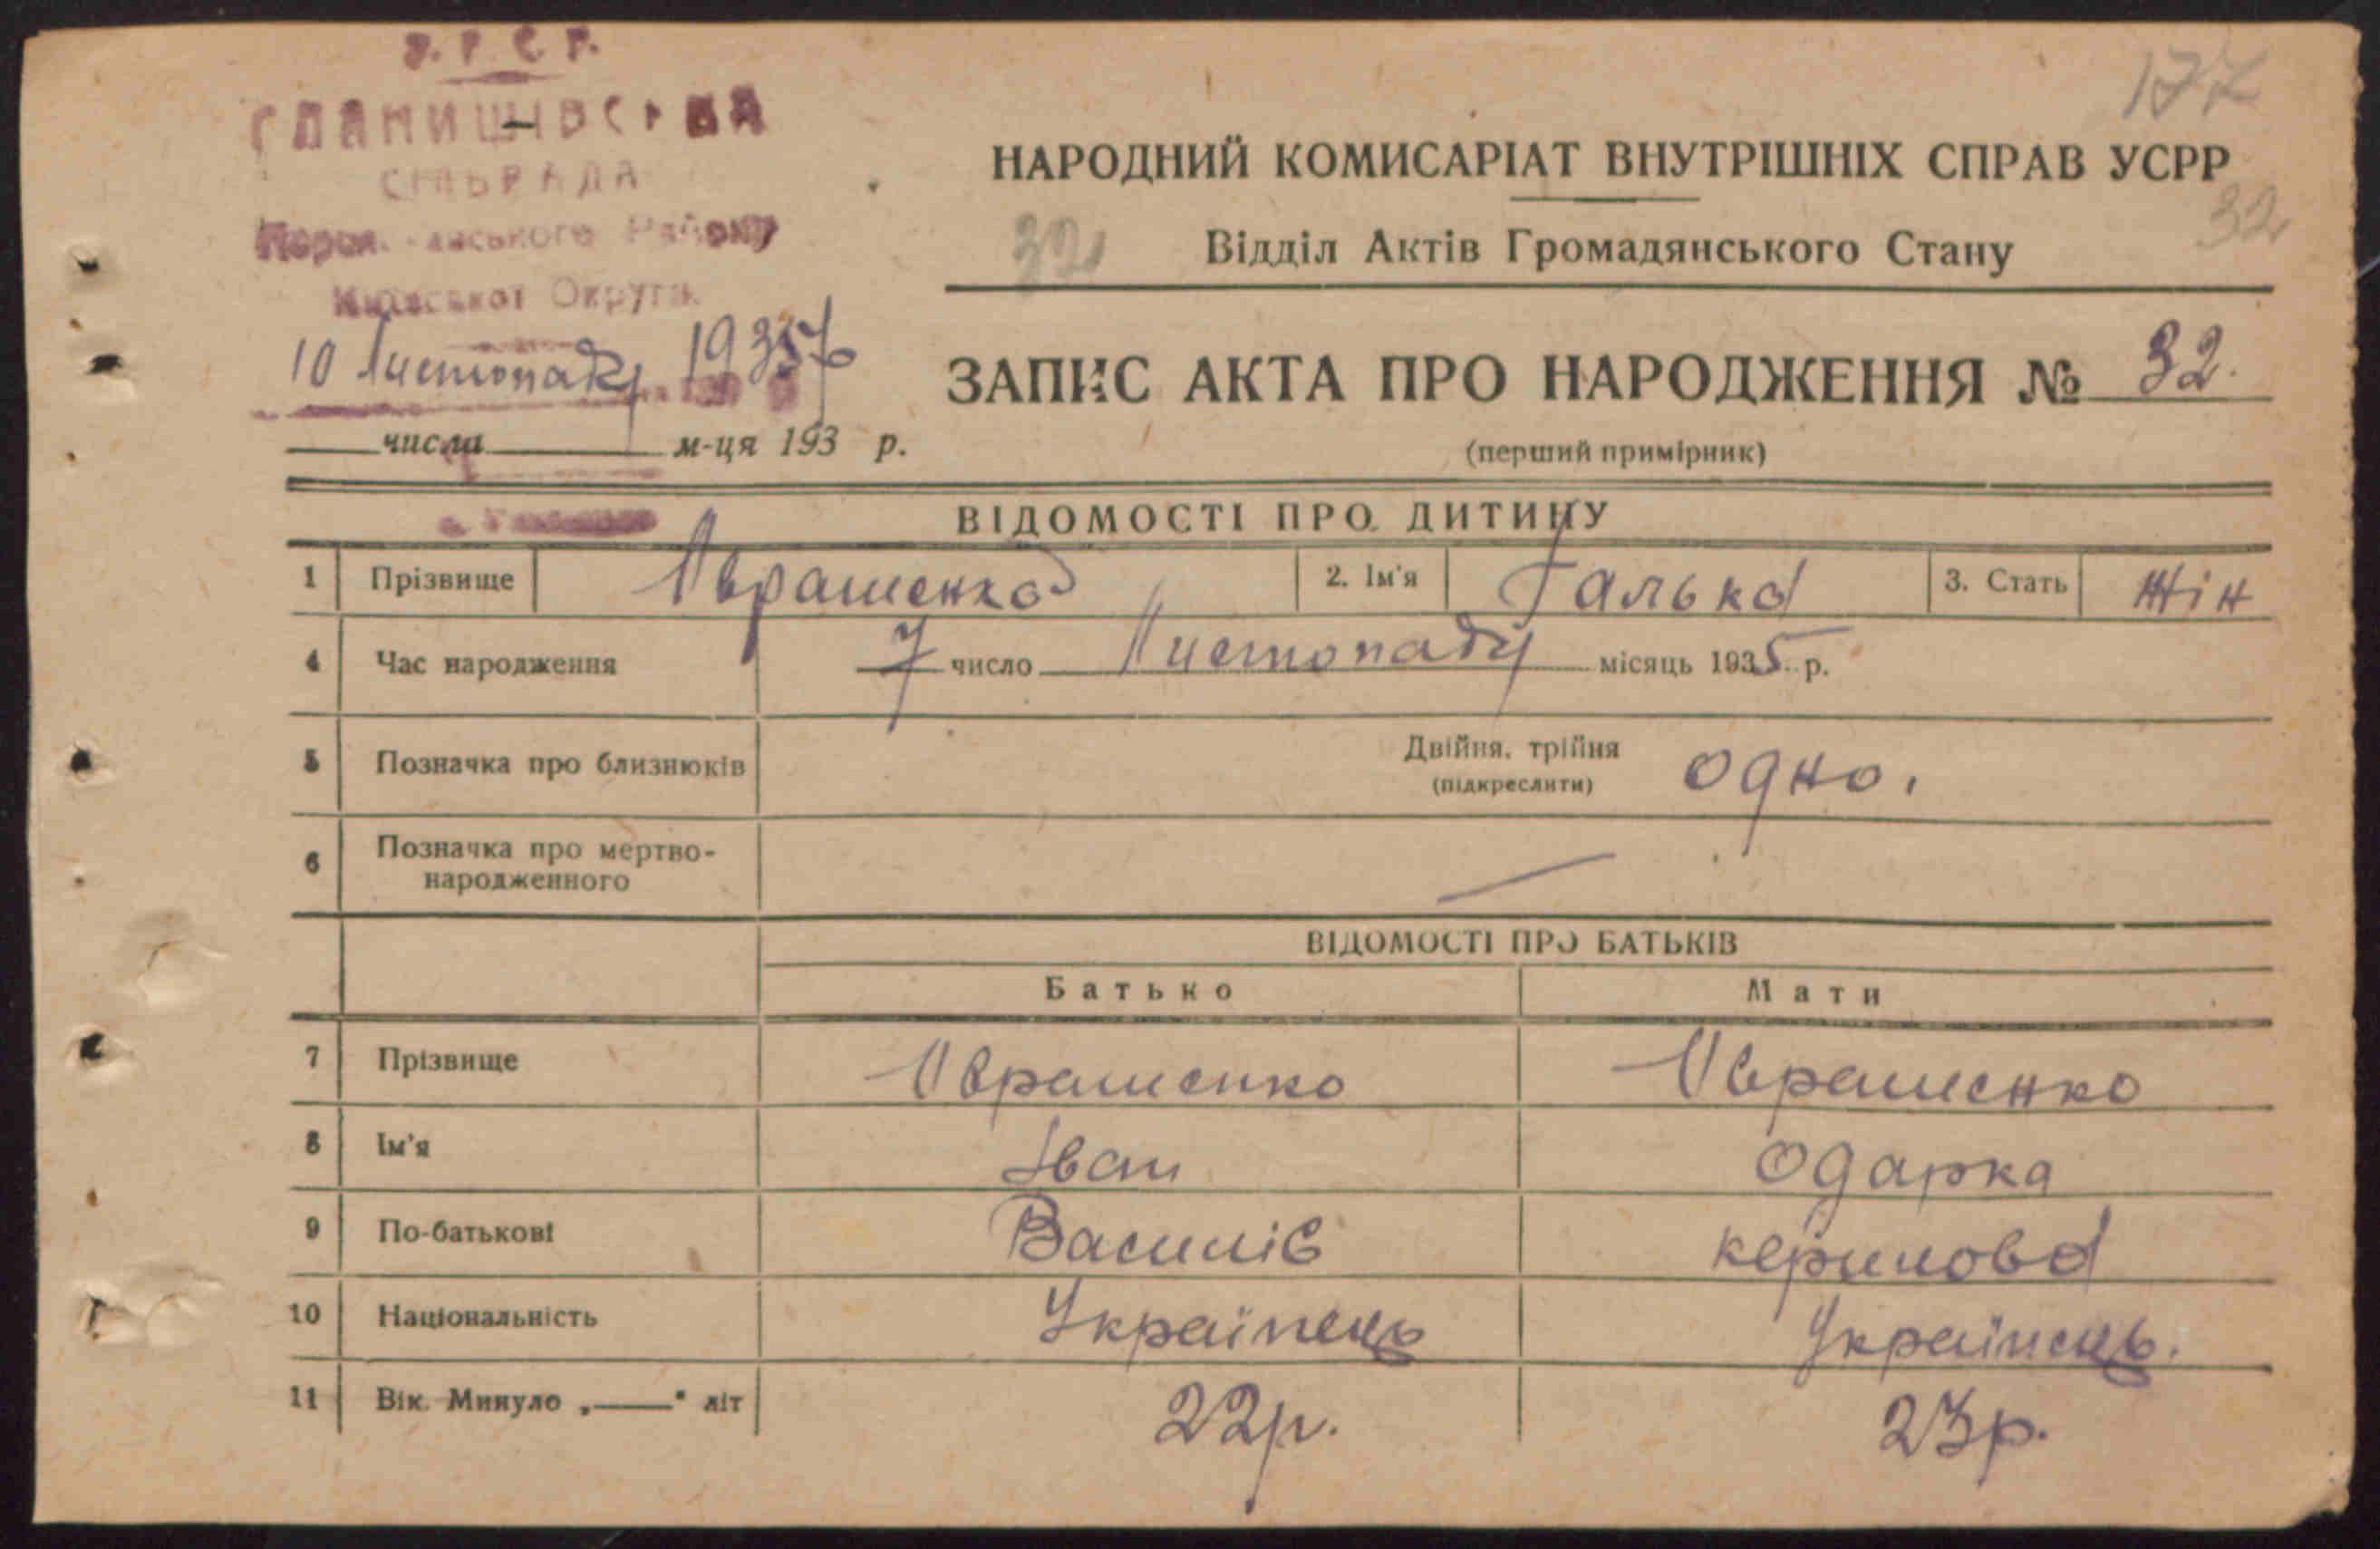 У.Р.С.Р.
СІЛЬРАДА
Району
Київської Округи
177
НАРОДНИЙ КОМИСАРІАТ ВНУТРІШНІХ СПРАВ УСРР
32
32
Відділ Актів Громадянського Стану
10 Листопаду 1935
ЗАПИС АКТА ПРО НАРОДЖЕННЯ № 32.
числа м-ця 193 р.
(перший примірник)
ВІДОМОСТІ ПРО ДИТИНУ
1 Прізвище Аврашенко 2. Ім'я Галька 3. Стать жін
4 Час народження 7 число Листопаду місяць 1935 р.
5 Позначка про близнюків Двійня, трійня (підкреслити) одно.
6 Позначка про мертвонародженного —
ВІДОМОСТІ ПРО БАТЬКІВ
Батько Мати
7 Прізвище Аврашенко Аврашенко
8 Ім'я Іван Одарка
9 По-батькові Василів керилова
10 Національність Українець Українець.
11 Вік. Минуло „——" літ 22р. 23р.